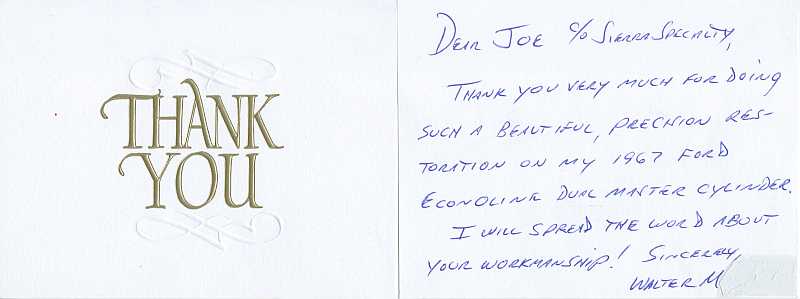 THANK
YOU
DEAR JOE c/o SIERRA SPECIALTY,
THANK YOU VERY MUCH FOR DOING
SUCH A BEAUTIFUL, PRECISION RES-
TORATION ON MY 1967 FORD
ECONOLINE DUAL MASTER CYLINDER.
I WILL SPREAD THE WORD ABOUT
YOUR WORKMANSHIP! SINCERELY,
WALTER M